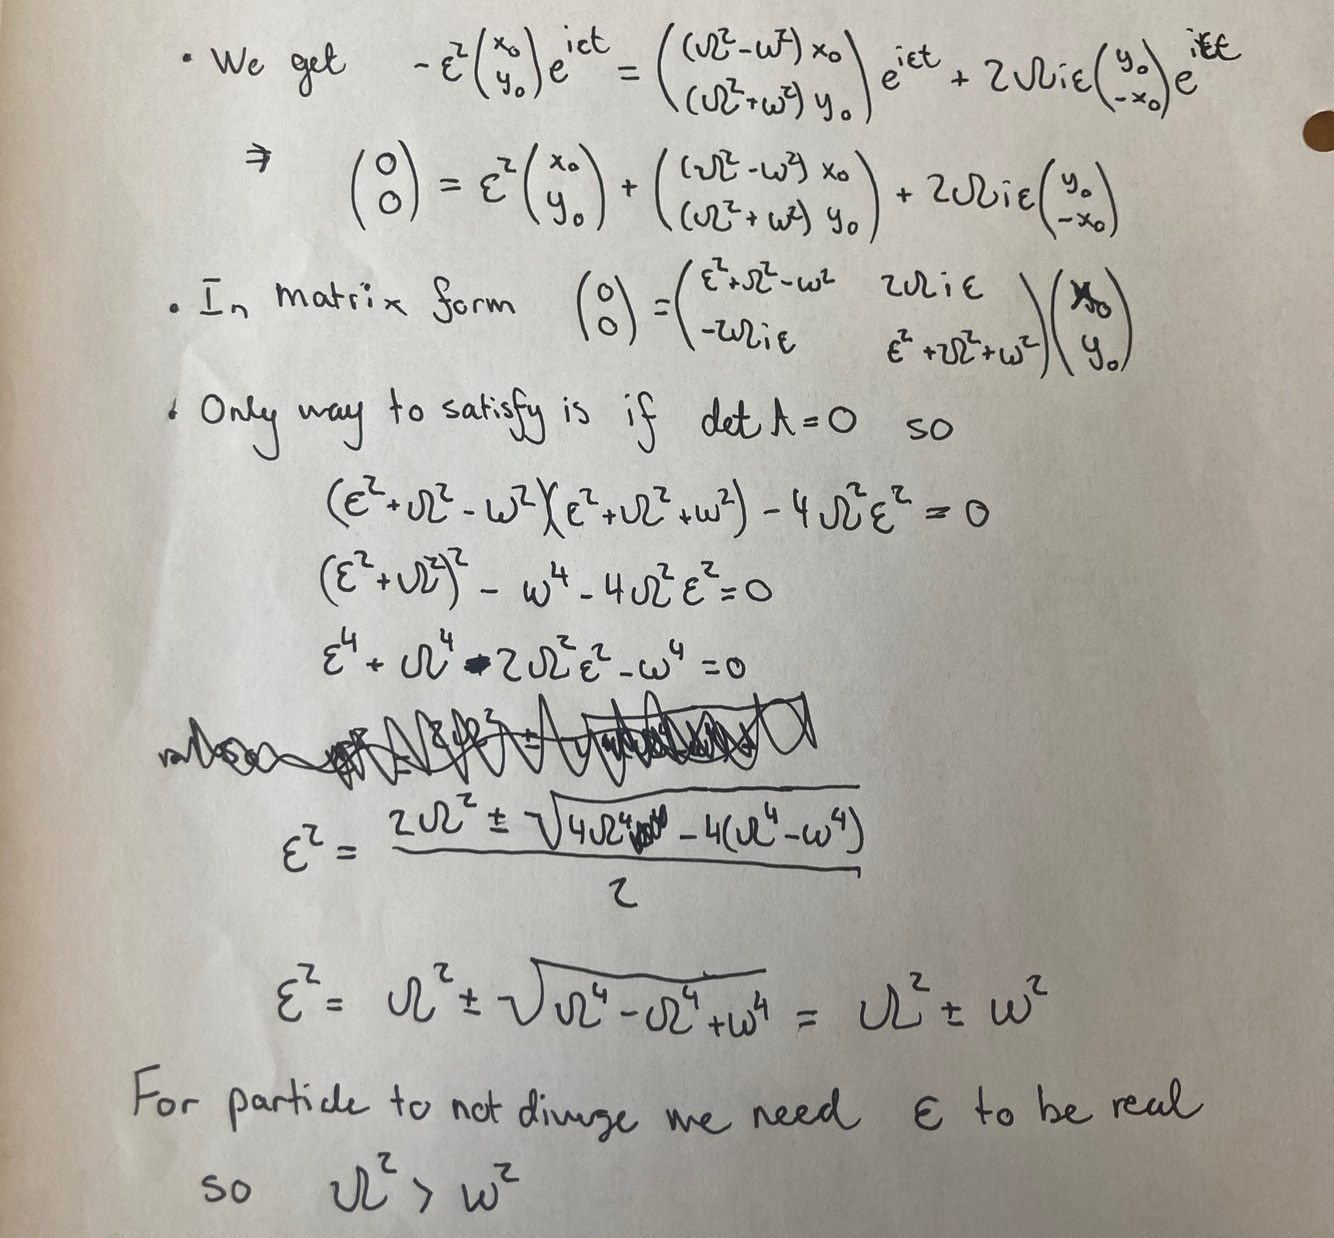 • We get -ε²(x₀ y₀)e^{iεt} = ((Ω²-ω²)x₀ (Ω²+ω²)y₀)e^{iεt} + 2Ωiε(y₀ -x₀)e^{iεt}
⇒ (0 0) = ε²(x₀ y₀) + ((Ω²-ω²)x₀ (Ω²+ω²)y₀) + 2Ωiε(y₀ -x₀)
• In matrix form (0 0) = (ε²+Ω²-ω² 2Ωiε -2Ωiε ε²+Ω²+ω²)(x₀ y₀)
• Only way to satisfy is if det A = 0 so
(ε²+Ω²-ω²)(ε²+Ω²+ω²) - 4Ω²ε² = 0
(ε²+Ω²)² - ω⁴ - 4Ω²ε² = 0
ε⁴ + Ω⁴ - 2Ω²ε² - ω⁴ = 0
ε² = (2Ω² ± √(4Ω⁴ - 4(Ω⁴-ω⁴)))/2
ε² = Ω² ± √(Ω⁴-Ω⁴+ω⁴) = Ω² ± ω²
For particle to not diverge we need ε to be real
so Ω² > ω²